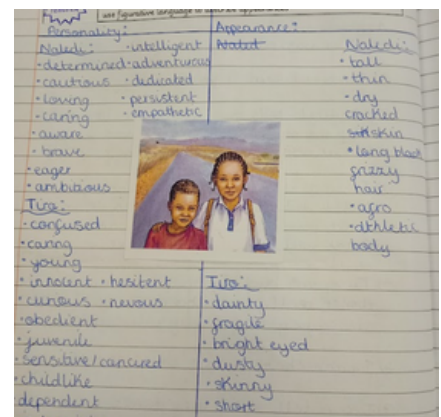 use figurative language to
Personality:
Naledi: • intelligent
• determined • adventurous
• cautious • dedicated
• loving • persistent
• caring • empathetic
• aware
• brave
• eager
• ambitious
Tiro:
• confused
• caring
• young
• innocent • hesitent
• curious • nevous
• obedient
• juvenile
• sensitive/
• childlike
dependent
Appearance:
Naledi
Naledi:
• tall
• thin
• dry
cracked
skin
• long black
frizzy
hair
• afro
• athletic
body
Tiro:
• dainty
• fragile
• bright eyed
• dusty
• skinny
• short